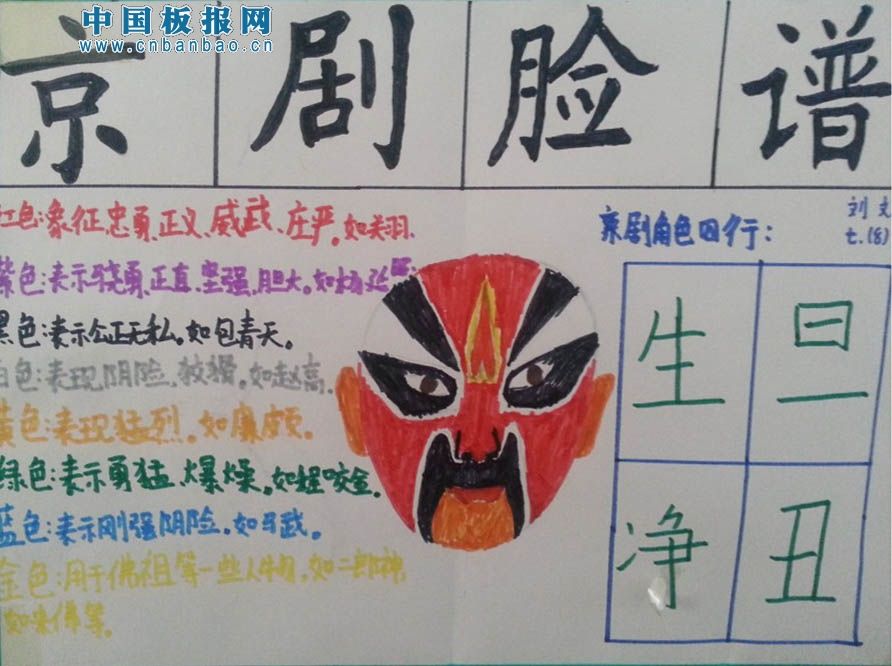 中国板报网
www.cnbanbao.cn
京剧脸谱
红色:象征忠勇、正义、威武、庄严。如关羽.
紫色:表示骁勇、正直、坚强、胆大。如杨延
黑色:表示公正无私。如包青天。
白色:表现阴险、狡猾。如赵高.
黄色:表现猛烈。如廉颇。
绿色:表示勇猛、爆燥。如程咬金.
蓝色:表示刚强阴险。如马武。
金色:用于佛祖等一些人物,如二郎神
如来佛等。
刘文
七.(8)
京剧角色四行:
生 旦
净 丑